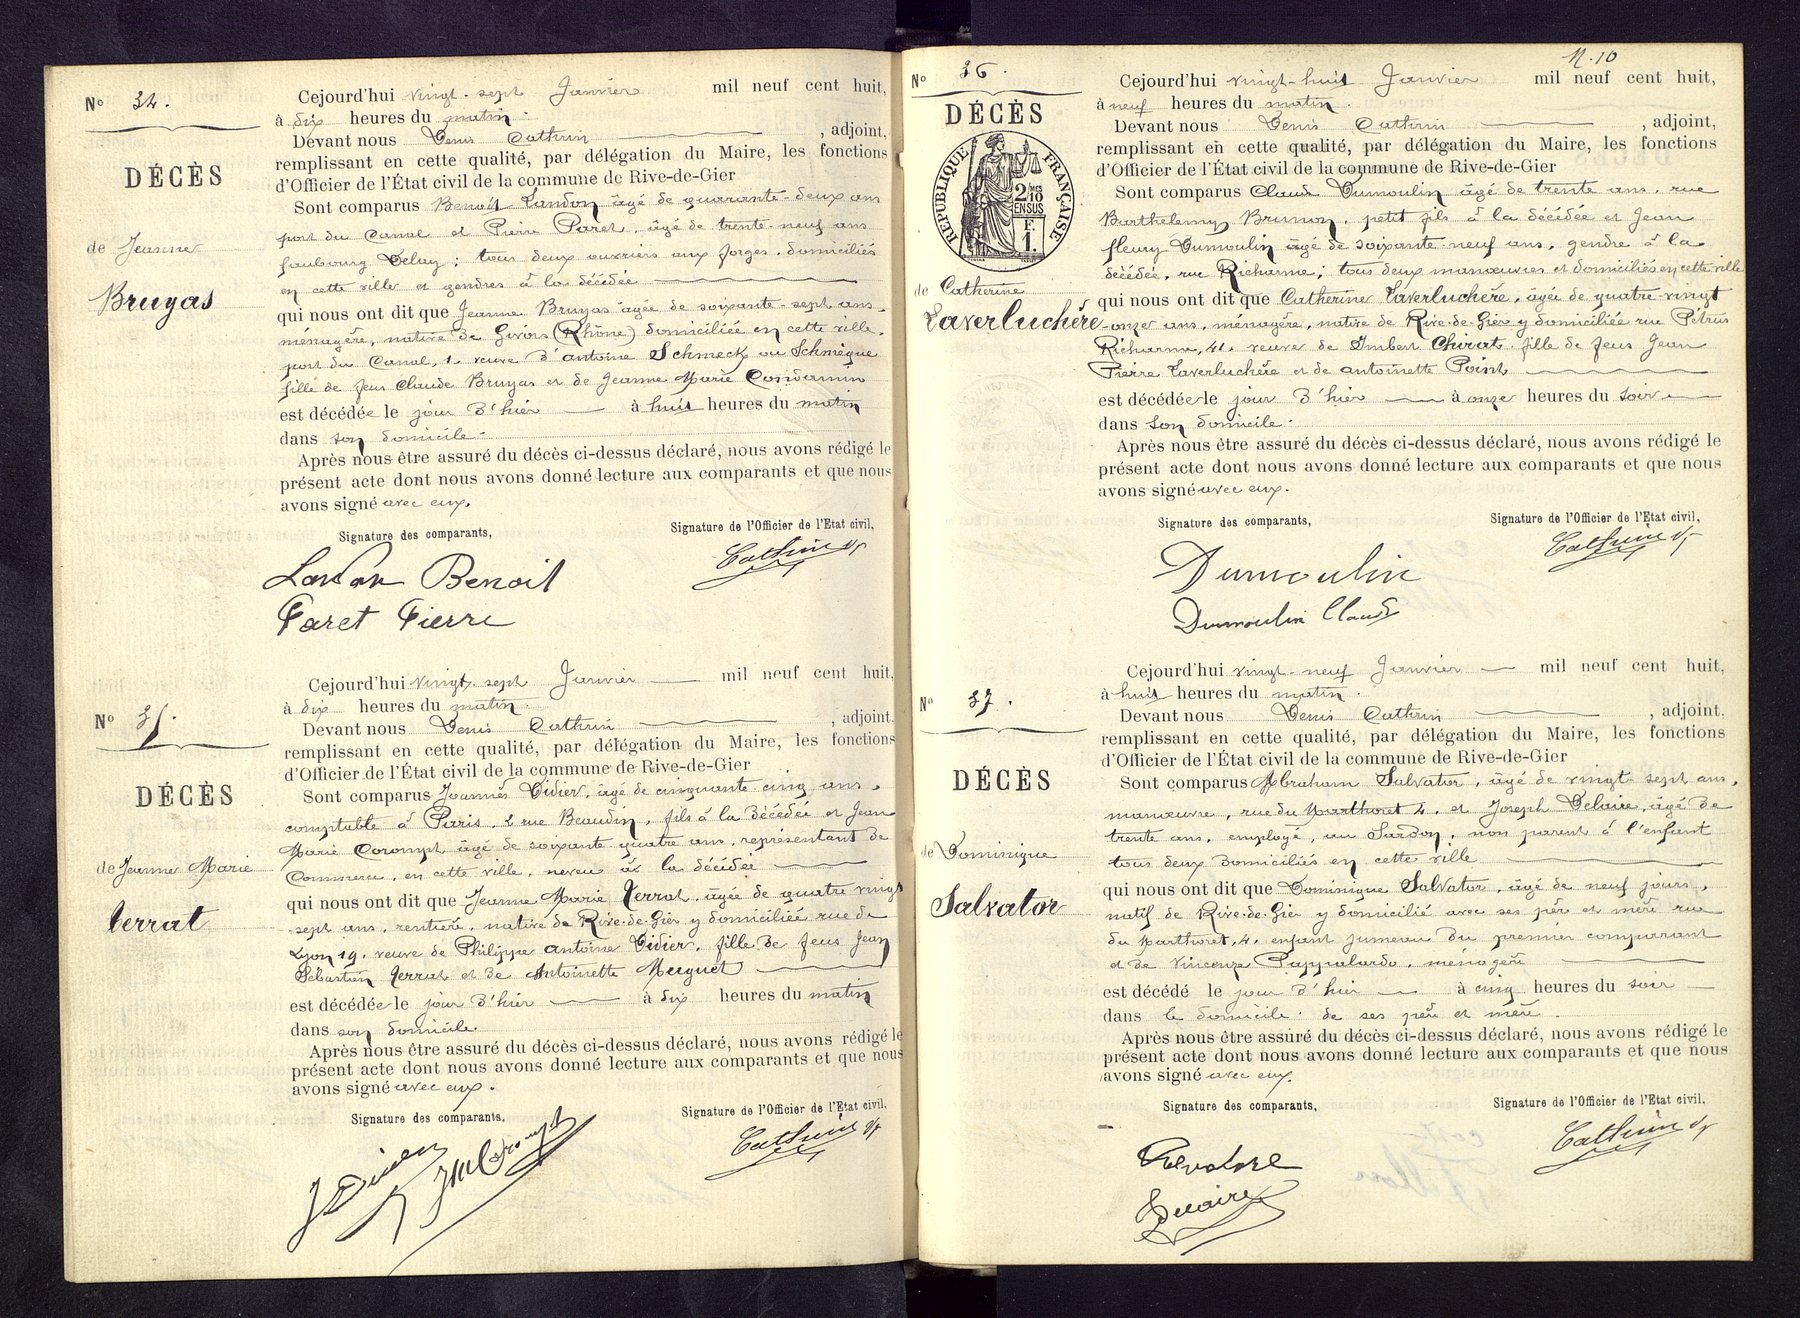 N° 34.
DÉCÈS
de Jeanne
Bruyas
Cejourd'hui vingt-sept Janvier mil neuf cent huit,
à dix heures du matin.
Devant nous Denis Cathrin, adjoint,
remplissant en cette qualité, par délégation du Maire, les fonctions
d'Officier de l'État civil de la commune de Rive-de-Gier
Sont comparus Benoît Landon âgé de quarante-deux ans
port du Canal et Pierre Paret, âgé de trente-neuf ans
faubourg Delay; tous deux ouvriers aux forges, domiciliés
en cette ville et gendres à la décédée
qui nous ont dit que Jeanne Bruyas âgée de soixante-sept ans,
ménagère, native de Givors (Rhône) domiciliée en cette ville,
port du Canal, 1, veuve d'antoine Schmeck ou Schmègue
fille de feus Claude Bruyas et de Jeanne Marie Condamin
est décédée le jour d'hier à huit heures du matin
dans son domicile.
Après nous être assuré du décès ci-dessus déclaré, nous avons rédigé le
présent acte dont nous avons donné lecture aux comparants et que nous
avons signé avec eux.
Signature des comparants,
Signature de l'Officier de l'Etat civil,
Landon Benoit
Paret Pierre
Cathrin
N° 35.
DÉCÈS
de Jeanne Marie
Terrat
Cejourd'hui vingt-sept Janvier mil neuf cent huit,
à dix heures du matin.
Devant nous Denis Cathrin, adjoint,
remplissant en cette qualité, par délégation du Maire, les fonctions
d'Officier de l'État civil de la commune de Rive-de-Gier
Sont comparus Joannès Didier, âgé de cinquante-cinq ans,
comptable à Paris, 2 rue Beaudin, fils à la décédée et Jean
Marie Coromp​t âgé de soixante-quatre ans, représentant de
Commerce, en cette ville, neveu à la décédée
qui nous ont dit que Jeanne Marie Terrat, âgée de quatre vingt
sept ans, rentière, native de Rive-de-Gier y domiciliée rue de
Lyon 19, veuve de Philippe antoine Didier, fille de feus Jean
Sébastien Terrat et de Antoinette Muguet
est décédée le jour d'hier à dix heures du matin
dans son domicile.
Après nous être assuré du décès ci-dessus déclaré, nous avons rédigé le
présent acte dont nous avons donné lecture aux comparants et que nous
avons signé avec eux.
Signature des comparants,
Signature de l'Officier de l'Etat civil,
J Didier
Cathrin
N. 10
N° 36.
DÉCÈS
RÉPUBLIQUE FRANÇAISE
2/10
MES
EN SUS
F.
1.
de Catherine
Laverluchère
Cejourd'hui vingt-huit Janvier mil neuf cent huit,
à neuf heures du matin.
Devant nous Denis Cathrin, adjoint,
remplissant en cette qualité, par délégation du Maire, les fonctions
d'Officier de l'État civil de la commune de Rive-de-Gier
Sont comparus Claude Dumoulin âgé de trente ans, rue
Barthelemy Brunon, petit fils à la décédée et Jean
fleury Dumoulin âgé de soixante-neuf ans, gendre à la
décédée, rue Richarme; tous deux manœuvres et domiciliés en cette ville
qui nous ont dit que Catherine Laverluchère, âgée de quatre-vingt
-onze ans, ménagère, native de Rive-de-Gier y domiciliée rue Pétrus
Richarme, 41, veuve de Imbert Chirat, fille de feus Jean
Pierre Laverluchère et de antoinette Point
est décédée le jour d'hier à onze heures du soir
dans son domicile.
Après nous être assuré du décès ci-dessus déclaré, nous avons rédigé le
présent acte dont nous avons donné lecture aux comparants et que nous
avons signé avec eux.
Signature des comparants,
Signature de l'Officier de l'Etat civil,
Dumoulin
Dumoulin Claude
Cathrin
N° 37.
DÉCÈS
de Dominique
Salvator
Cejourd'hui vingt-neuf Janvier mil neuf cent huit,
à huit heures du matin.
Devant nous Denis Cathrin, adjoint,
remplissant en cette qualité, par délégation du Maire, les fonctions
d'Officier de l'État civil de la commune de Rive-de-Gier
Sont comparus Abraham Salvator, âgé de vingt-sept ans,
manœuvre, rue du Marthoret 4, et Joseph Delaire, âgé de
trente ans, employé, au Sardon, non parent à l'enfant
tous deux domiciliés en cette ville
qui nous ont dit que Dominique Salvator, âgé de neuf jours,
natif de Rive-de-Gier y domicilié avec ses père et mère rue
du Marthoret, 4, enfant jumeau du premier comparant
et de Vincenza Pappalardo, ménagère
est décédé le jour d'hier à cinq heures du soir
dans le domicile de ses père et mère.
Après nous être assuré du décès ci-dessus déclaré, nous avons rédigé le
présent acte dont nous avons donné lecture aux comparants et que nous
avons signé avec eux.
Signature des comparants,
Signature de l'Officier de l'Etat civil,
Delaire
Cathrin